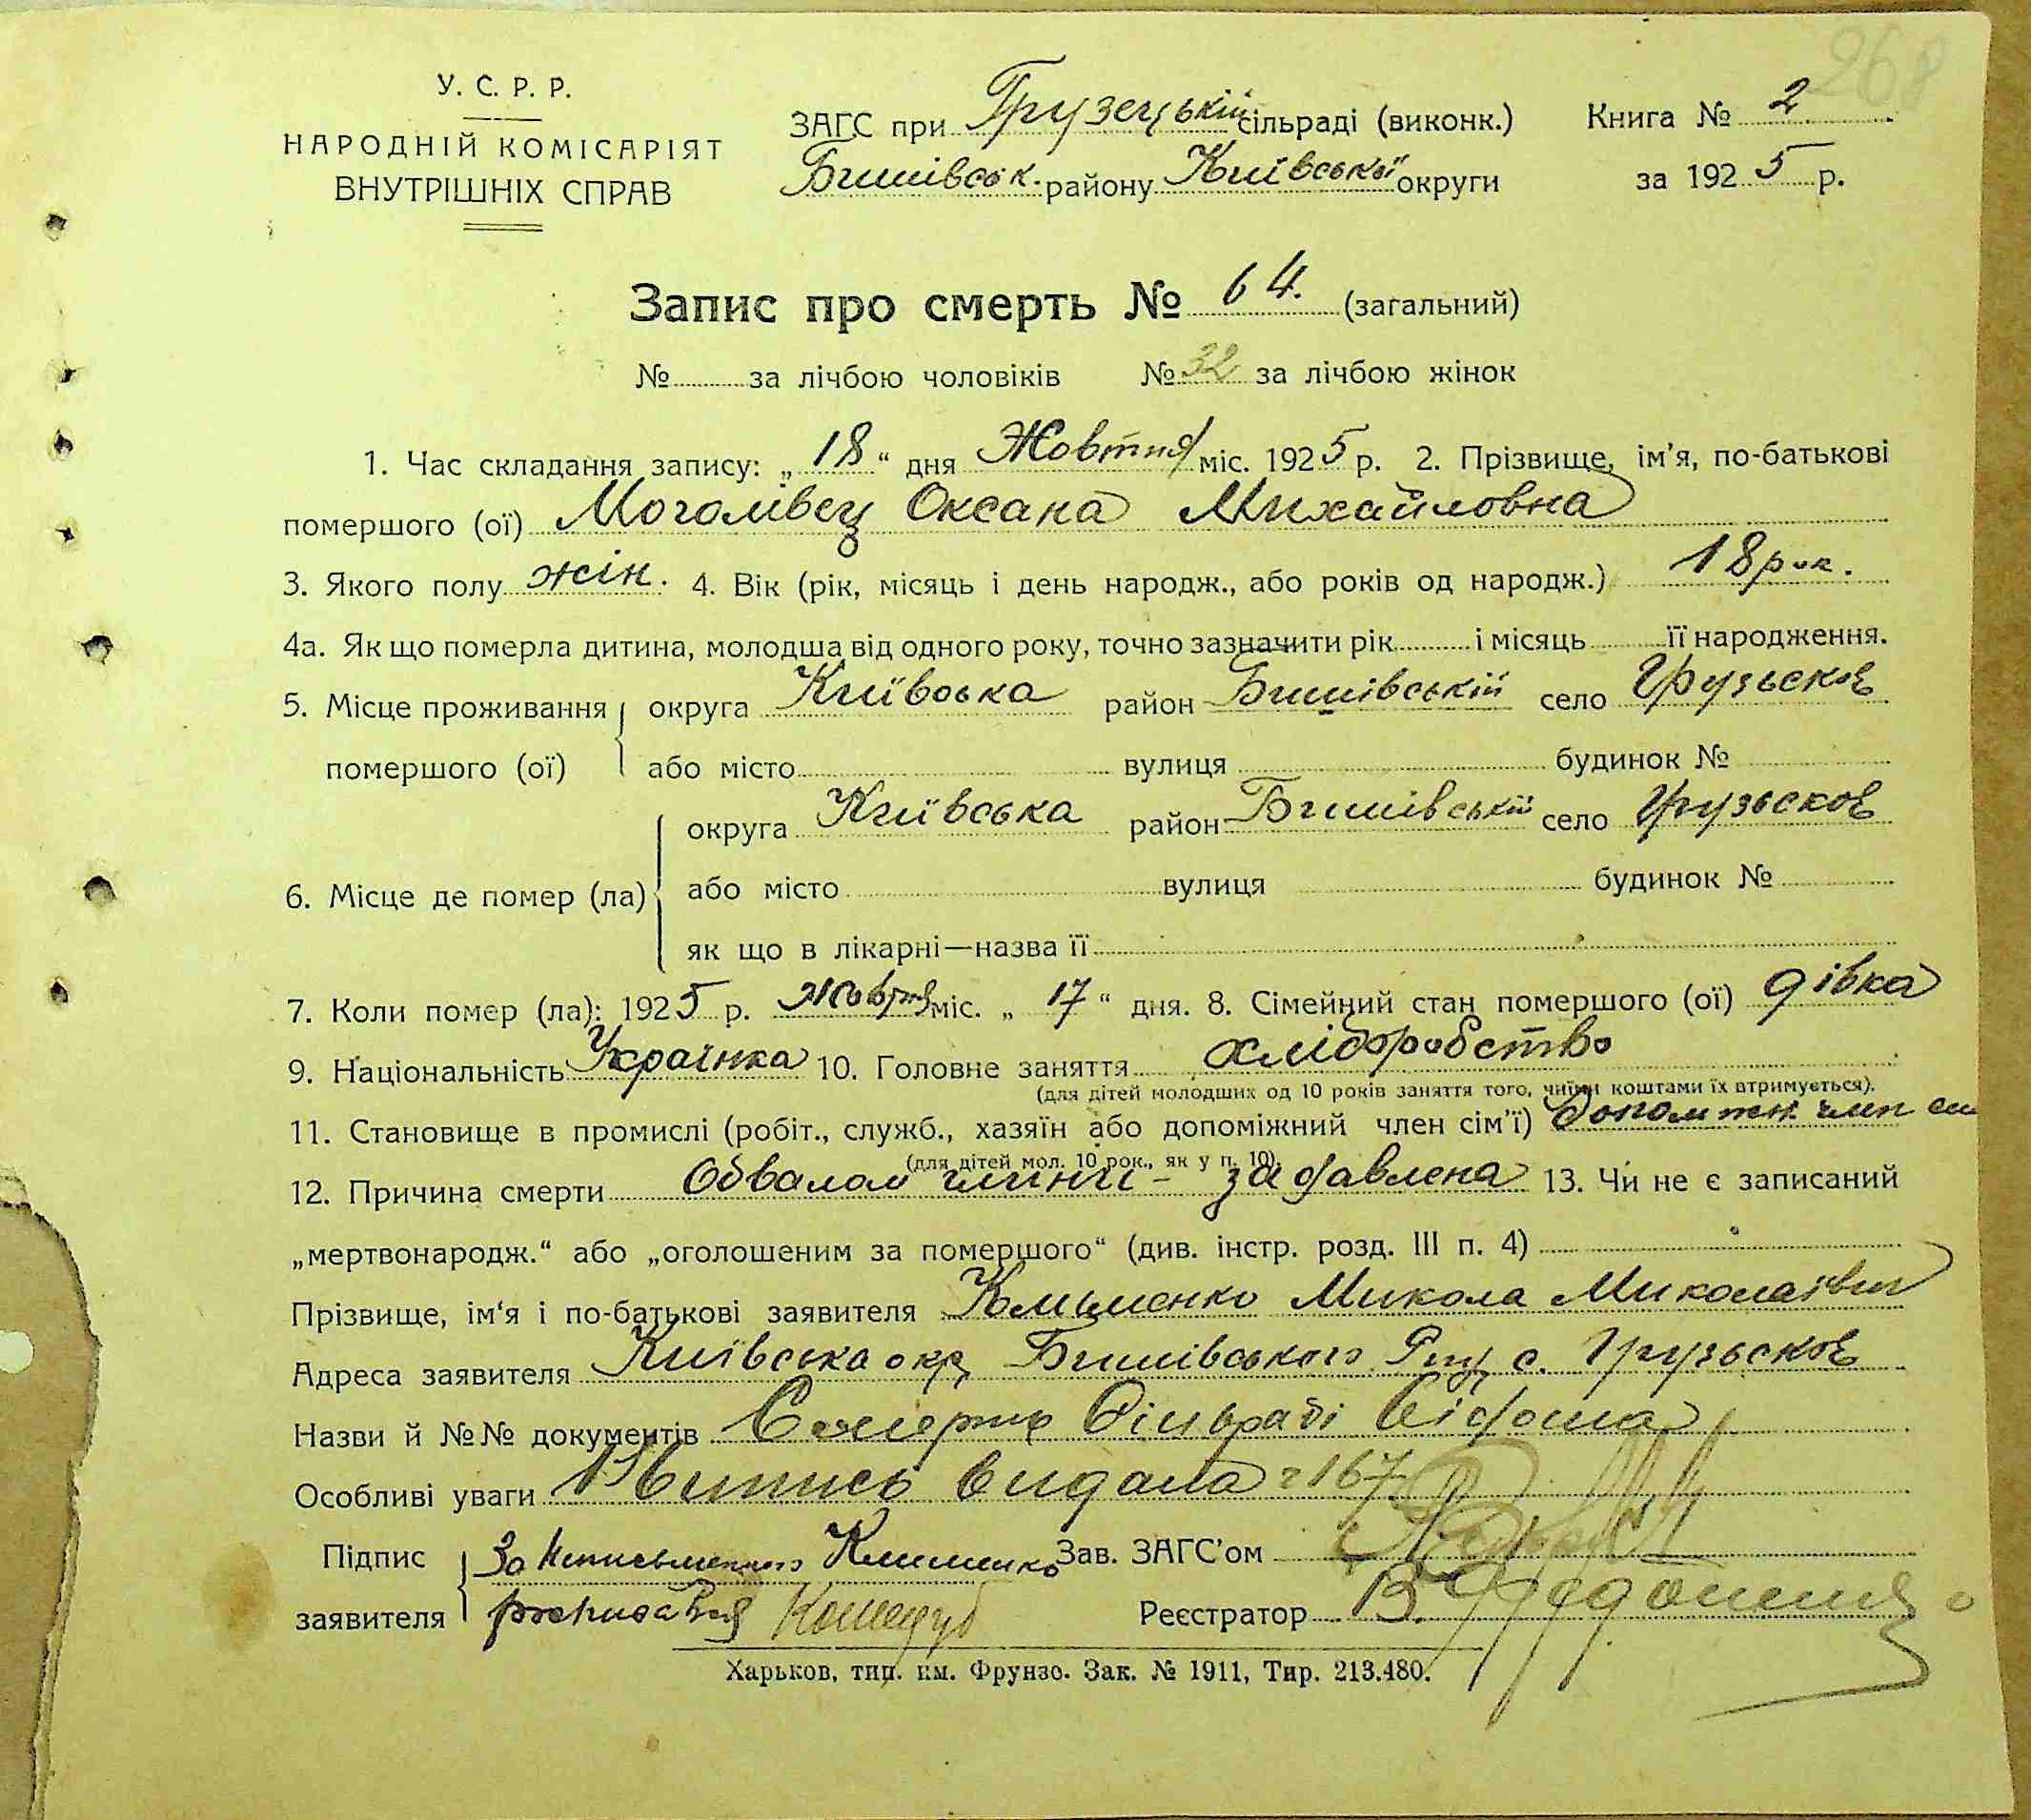 268
У. С. Р. Р.
НАРОДНІЙ КОМІСАРІЯТ
ВНУТРІШНІХ СПРАВ
ЗАГС при Грузецькій сільраді (виконк.)
Бишівськ. району Київської округи
Книга № 2
за 1925 р.
Запис про смерть № 64. (загальний)
№ за лічбою чоловіків № 32 за лічбою жінок
1. Час складання запису: „18“ дня Жовтня міс. 1925 р. 2. Прізвище, ім’я, по-батькові
помершого (ої) Оксана Михайловна
3. Якого полу жін. 4. Вік (рік, місяць і день народж., або років од народж.) 18 рок.
4а. Як що померла дитина, молодша від одного року, точно зазначити рік і місяць її народження.
5. Місце проживання округа Київська район Бишівській село Грузьское
помершого (ої) або місто вулиця будинок №
округа Київська район Бишівській село Грузьское
6. Місце де помер (ла) або місто вулиця будинок №
як що в лікарні—назва її
7. Коли помер (ла): 1925 р. Жовтня міс. „17“ дня. 8. Сімейний стан помершого (ої) дівка
9. Національність Українка 10. Головне заняття хліборобство
(для дітей молодших од 10 років заняття того, чиїми коштами їх втримується).
11. Становище в промислі (робіт., служб., хазяїн або допоміжний член сім’ї) допомжн. член сім
(для дітей мол. 10 рок., як у п. 10).
12. Причина смерти Обвалом глини - задавлена 13. Чи не є записаний
„мертвонародж.“ або „оголошеним за помершого“ (див. інстр. розд. III п. 4)
Прізвище, ім‘я і по-батькові заявителя Микола Миколаївич
Адреса заявителя Київська окр. Бишівського с. Грузьское
Назви й №№ документів Смерть Сільраді
Особливі уваги Витись видала 167
Підпис За Неписьменного Клименко Зав. ЗАГС’ом
заявителя росписався Реєстратор В.
Харьков, тип. им. Фрунзо. Зак. № 1911, Тир. 213.480.